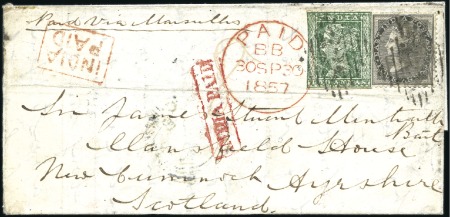 Paid via Marseilles
INDIA PAID
PAID
BB
30 SP 30
1857
INDIA
INDIA PAID
Sir James Stuart Menteath Bart
Mansfield House
New Cumnock Ayrshire
Scotland.